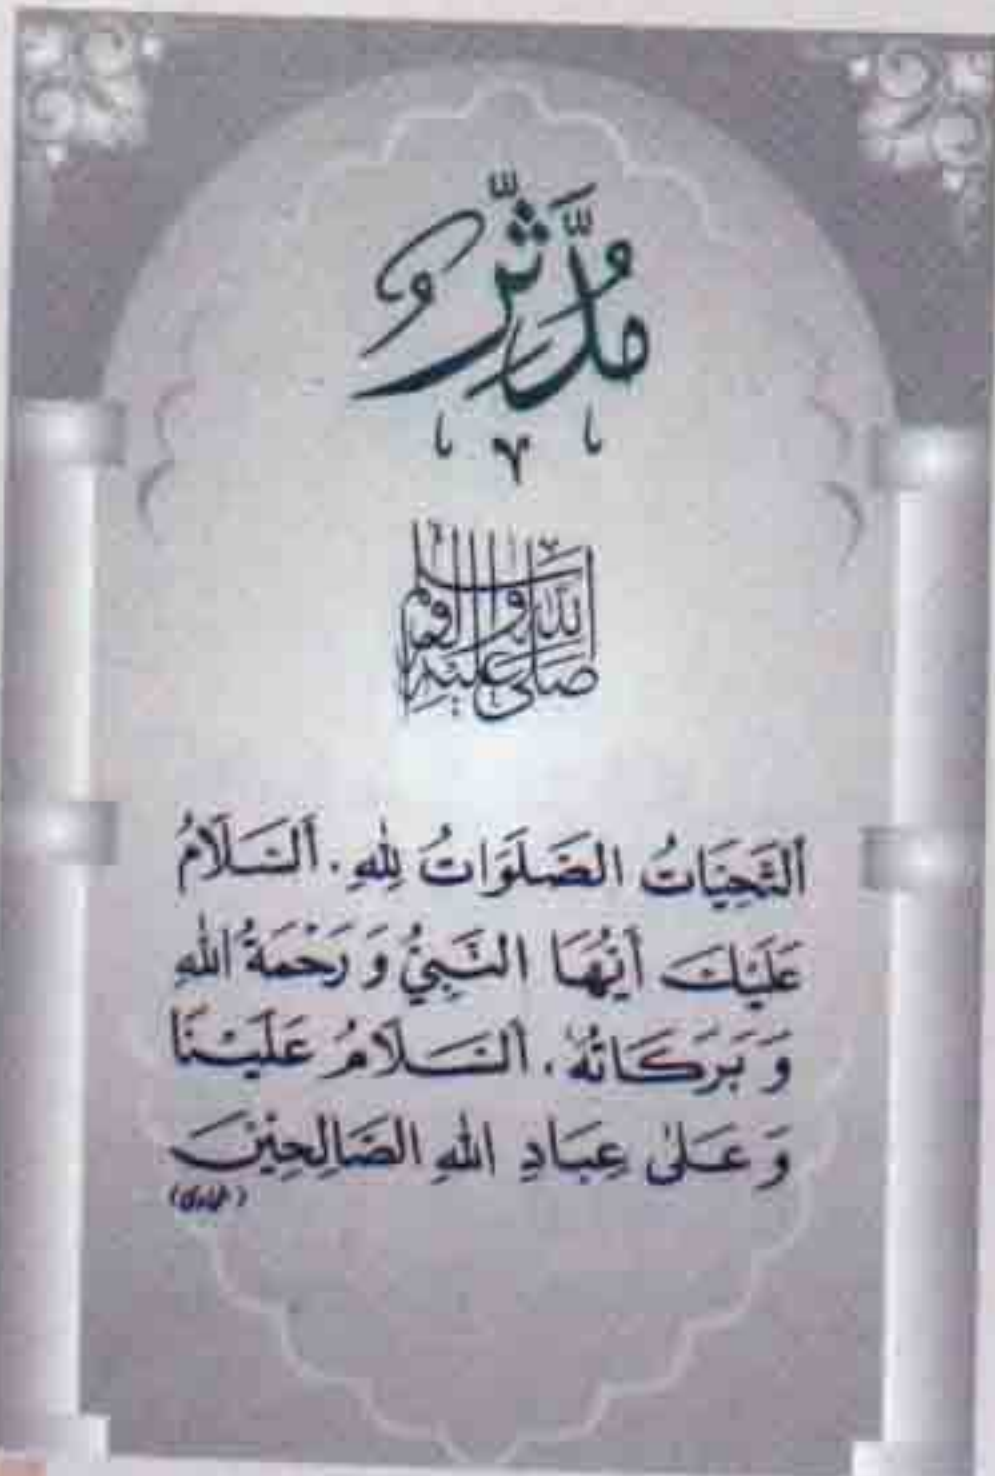 مُدَّثِّرٌ
صَلَّى اللهُ عَلَيْهِ وَآلِهِ وَسَلَّمَ
اَلتَّحِيَّاتُ الصَّلَوَاتُ لِلّٰهِ. اَلسَّلَامُ
عَلَيْكَ اَيُّهَا النَّبِيُّ وَ رَحْمَةُ اللهِ
وَ بَرَكَاتُهٗ. اَلسَّلَامُ عَلَيْنَا
وَ عَلٰى عِبَادِ اللهِ الصَّالِحِيْنَ